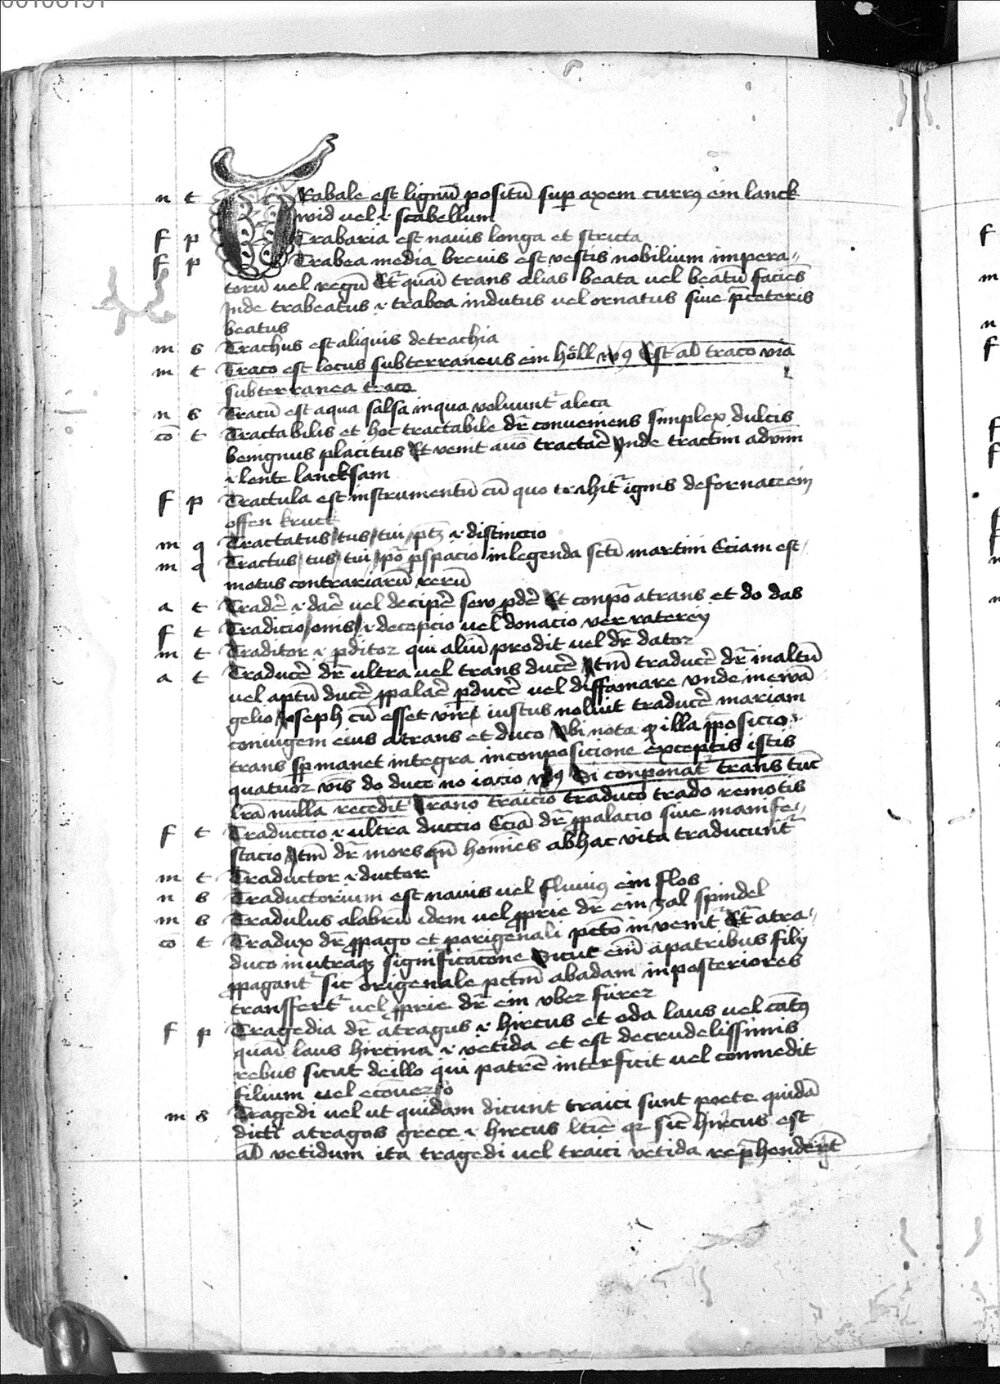 00106191
n t Trabale est lignū positū sup axem currꝯ ein lanck
wid uel ⁊ scabellum
f p Trabaria est nauis longa et stricta
f p Trabea media breuis est vestis nobilium impera-
torū vel regū Et quā trans alias beata vel beatū facies
Inde trabeatus ⁊ trabea indutus vel ornatus siue p̄ceteris
beatus
m s Trachus est aliquis de trachia
m t Traco est locus subterraneus ein höll Est al traco via
subterranea traco
n s Tracū est aqua salsa inqua voluunt̄ aleca
cō t Tractabilis et hoc tractabile dr̄ conueniens simplex dulcis
benignus placitus Et venit tractar̄ Inde tractim
⁊ lente lancksam
f p Tractula est instrumentū cū quo trahit̄ ignis de fornace ein
offen kruck
m q Tractatus/tus/tui/ ⁊ distinctio
m q Tractus/tus/tui/ spacio in legenda sctī martini Eciam est
motus contrariarū rerū
a t Trader̄ ⁊ dar̄ vel deciper̄ seu ꝑder̄ Et conpo͛ atrans et do das
f t Tradicio/onis/⁊ decepcio vel donacio ver raterey
m t Traditor ⁊ ꝓditor qui aliū prodit vel dr̄ dator
a t Traducer̄ dr̄ ultra vel trans ducer̄ Itm̄ traducer̄ dr̄ in altū
vel aptū ducer̄ ꝓpalar̄ ꝓducer̄ vel diffamare vnde in ewā
gelio Joseph cū esset iustus noluit traducer̄ mariam
coniugem eius atrans et duco Vbi nota ꝙ illa p̄posicio
trans sp̄ manet integra in conposicione exceptis istis
quatuor do duco no iacio Si conponat̄ trans tūc
lrā nulla recedit Trano traicio traduco trado remotis
f t Traduccio ⁊ ultra duccio Eciā dr̄ ꝓpalacio siue manife-
stacio Itm̄ dr̄ mors qn̄ homines ab hac vita traducunt̄
m t Traductor ⁊ ductor
n s Traductorium est nauis vel fluuiꝯ ein flos
m s Tradulus alabrū idem vel ꝓprie dr̄ ein zal spindel
cō t Tradux dr̄ ꝓpago et pctō inuenit̄ Et atra-
duco in utraqꝫ significacōne Sicut em̄ a patribus filij
ꝓpagant̄ sic origenale pctm̄ ab adam in posteriores
transffert̄ vel ꝓprie dr̄ ein vber fürer
f p Tragedia dr̄ atragus ⁊ hircus et oda laus vel cātꝯ
quasi laus hircina ⁊ vetida et est de crudelissimis
rebus sicut de illo qui patrē interficit vel conmedit
filium vel econuerso
m s Tragedi vel ut quidam dicunt traici sunt poete quidā
dicti atragos grece ⁊ hircus ltīe qꝛ sic hircus est
al vetidum ita tragedi vel traici vetida rep̄henderūt